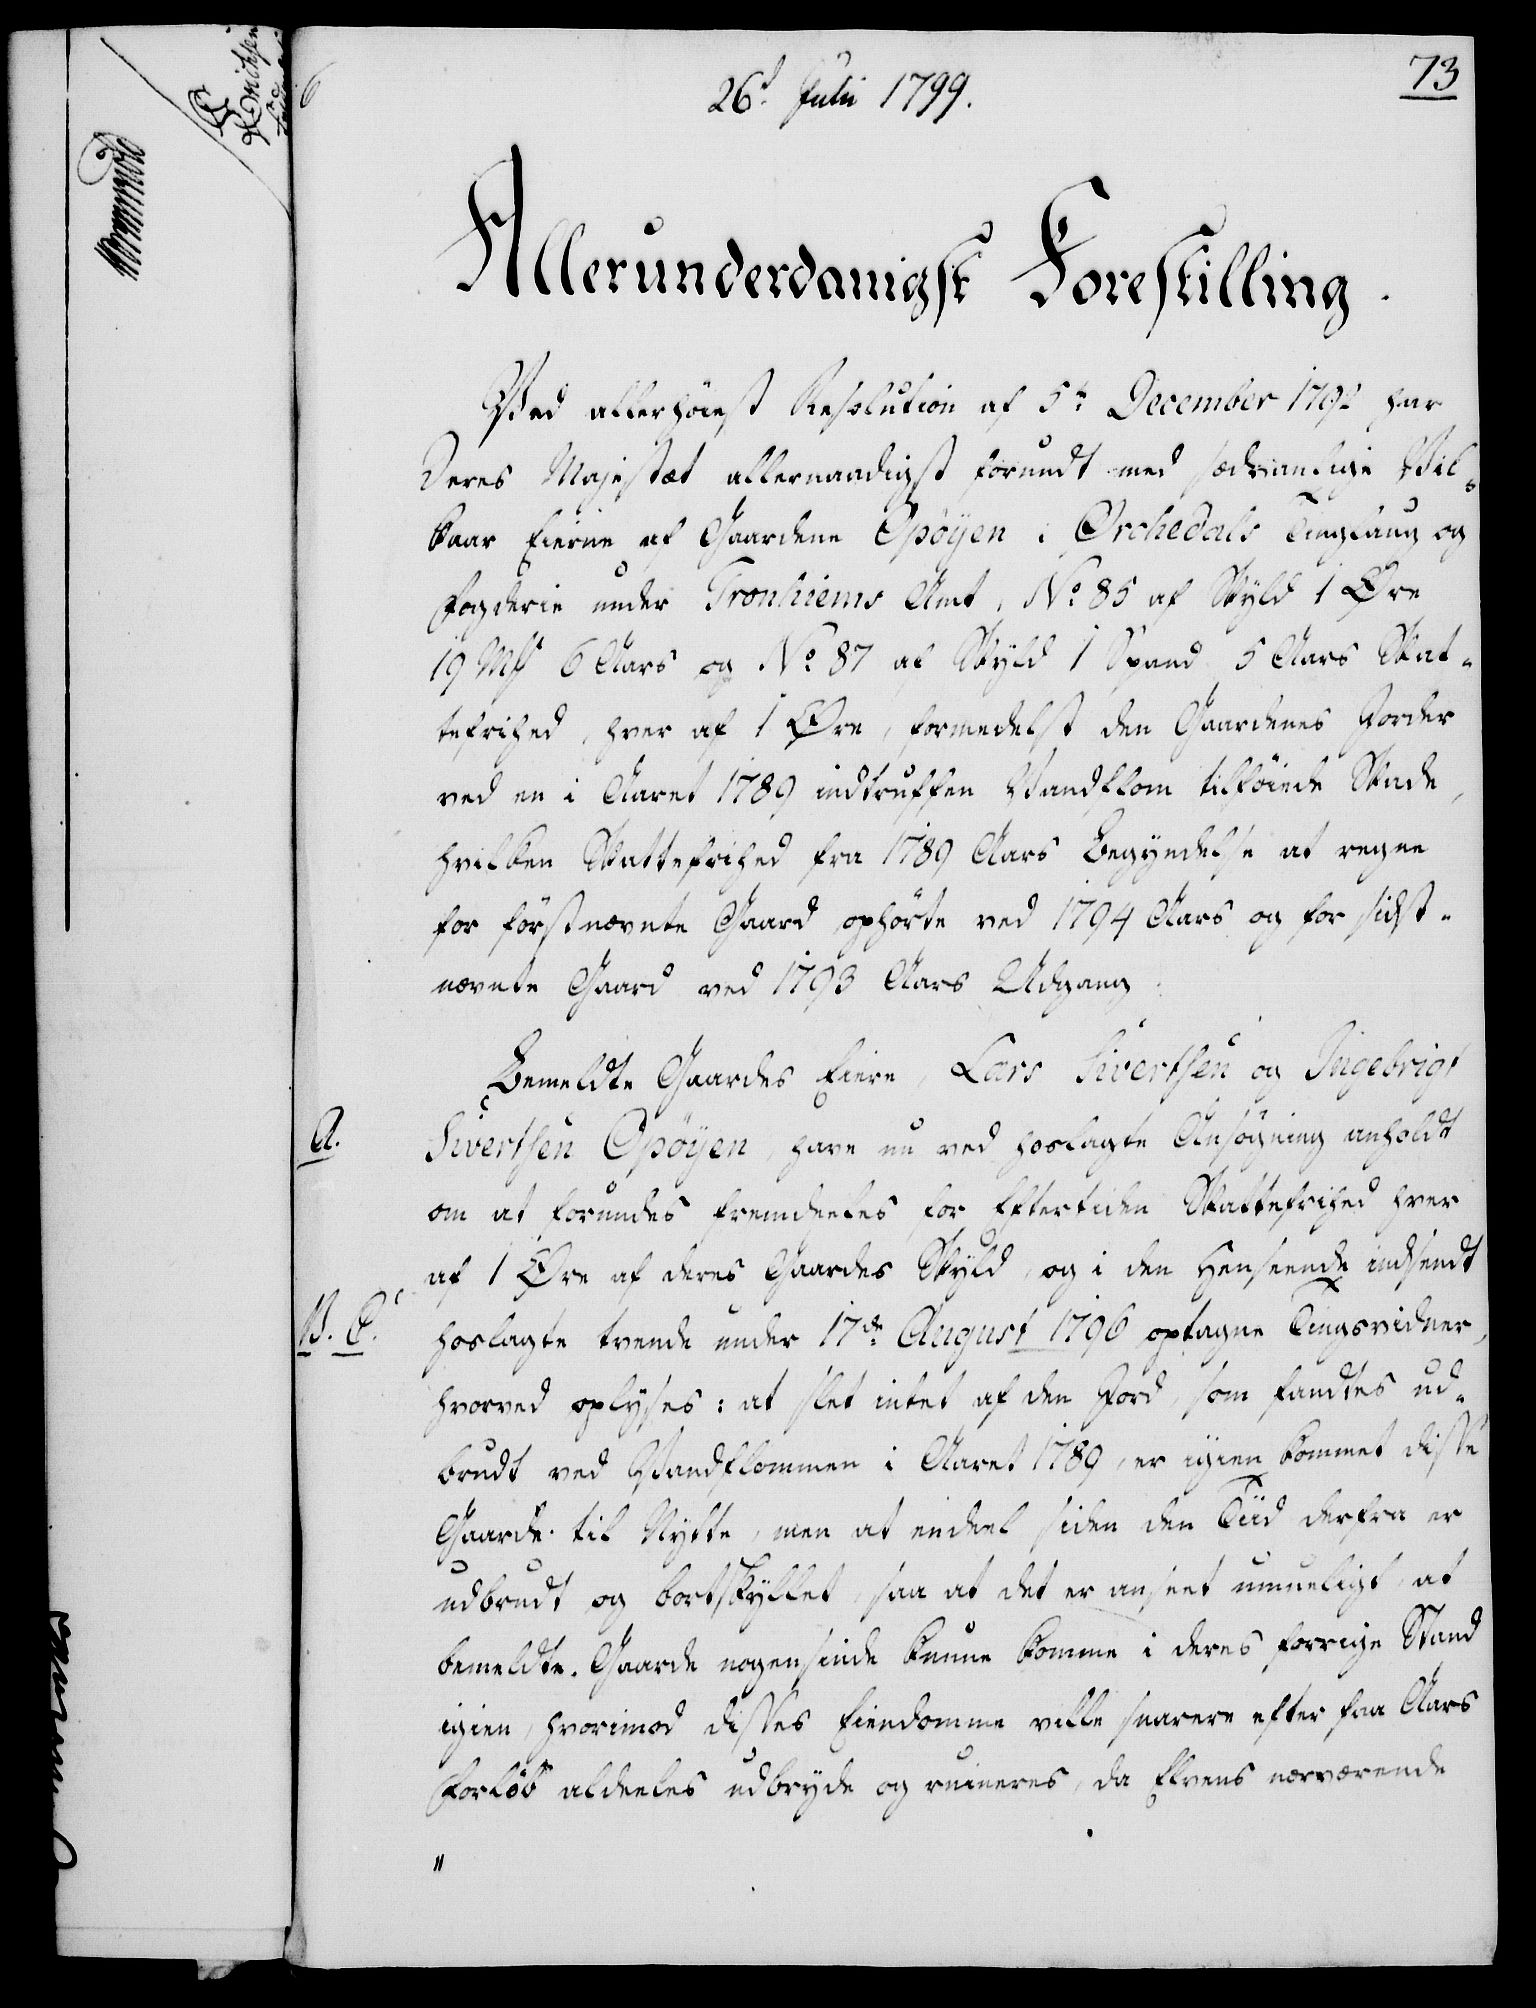 73
26d Julii 1799.
Allerunderdanigst Forestilling.
Ved allerhöiest Resolution af 5te December 1792 har
Deres Majestæt allernaadigst forundt med sædvanlige Vil-
kaar Eierne af Gaardene Opöyen i Orchedals Tinglaug og
Fogderie under Tronhiems Amt, No 85 af Skyld 1 Øre
19 Mk 6 Aars og No 87 af Skyld 1 Spand 5 Aars Skat-
tefrihed, hver af 1 Øre, formedelst den Gaardenes Jorder
ved en i Aaret 1789 indtruffen Vandflom tilföiede Skade,
hvilken Skattefrihed fra 1789 Aars Begyndelse at regne
for förstnævnte Gaard ophörte ved 1794 Aars og for sidst-
nævnte Gaard ved 1793 Aars Udgang.
Bemeldte Gaardes Eiere, Lars Sivertsen og Ingebrigt
A.
Sivertsen Opöyen, have nu ved hoslagte Ansögning anholdt
om at forundes fremdeeles for Eftertiden Skattefrihed hver
af 1 Øre af deres Gaardes Skyld, og i den Henseende indsendt
B. C.
hoslagte tvende under 17de August 1796 optagne Tingsvidner,
hvorved oplyses: at slet intet af den Jord, som fandtes ud-
brudt ved Vandflommen i Aaret 1789, er igien kommet disse
Gaarde til Nytte, men at endeel siden den Tiid derfra er
udbrudt og bortskyllet, saa at det er anseet umueligt, at
bemeldte Gaarde nogensinde kunne komme i deres forrige Stand
igien, hvorimod disses Eiendomme ville snarere efter faa Aars
Forlöb aldeeles udbryde og ruineres, da Elvens nærværende
"